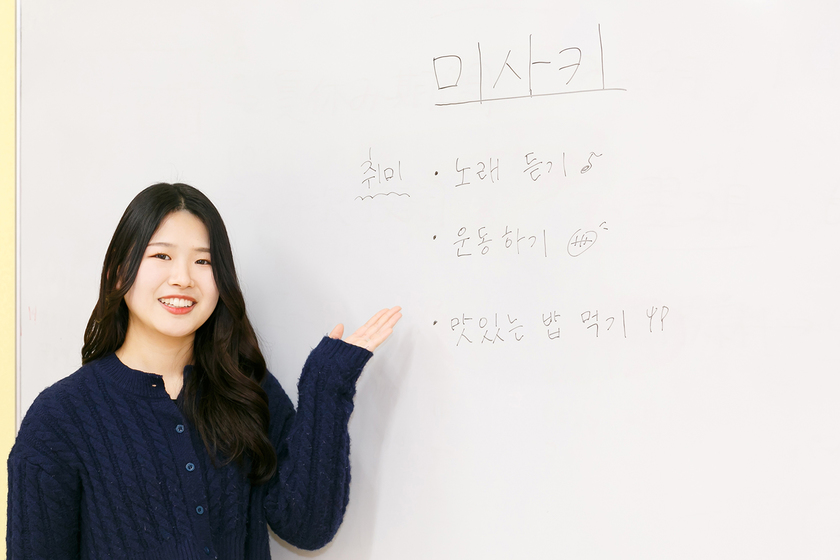 미사키
취미 · 노래 듣기 ♪
· 운동하기
· 맛있는 밥 먹기